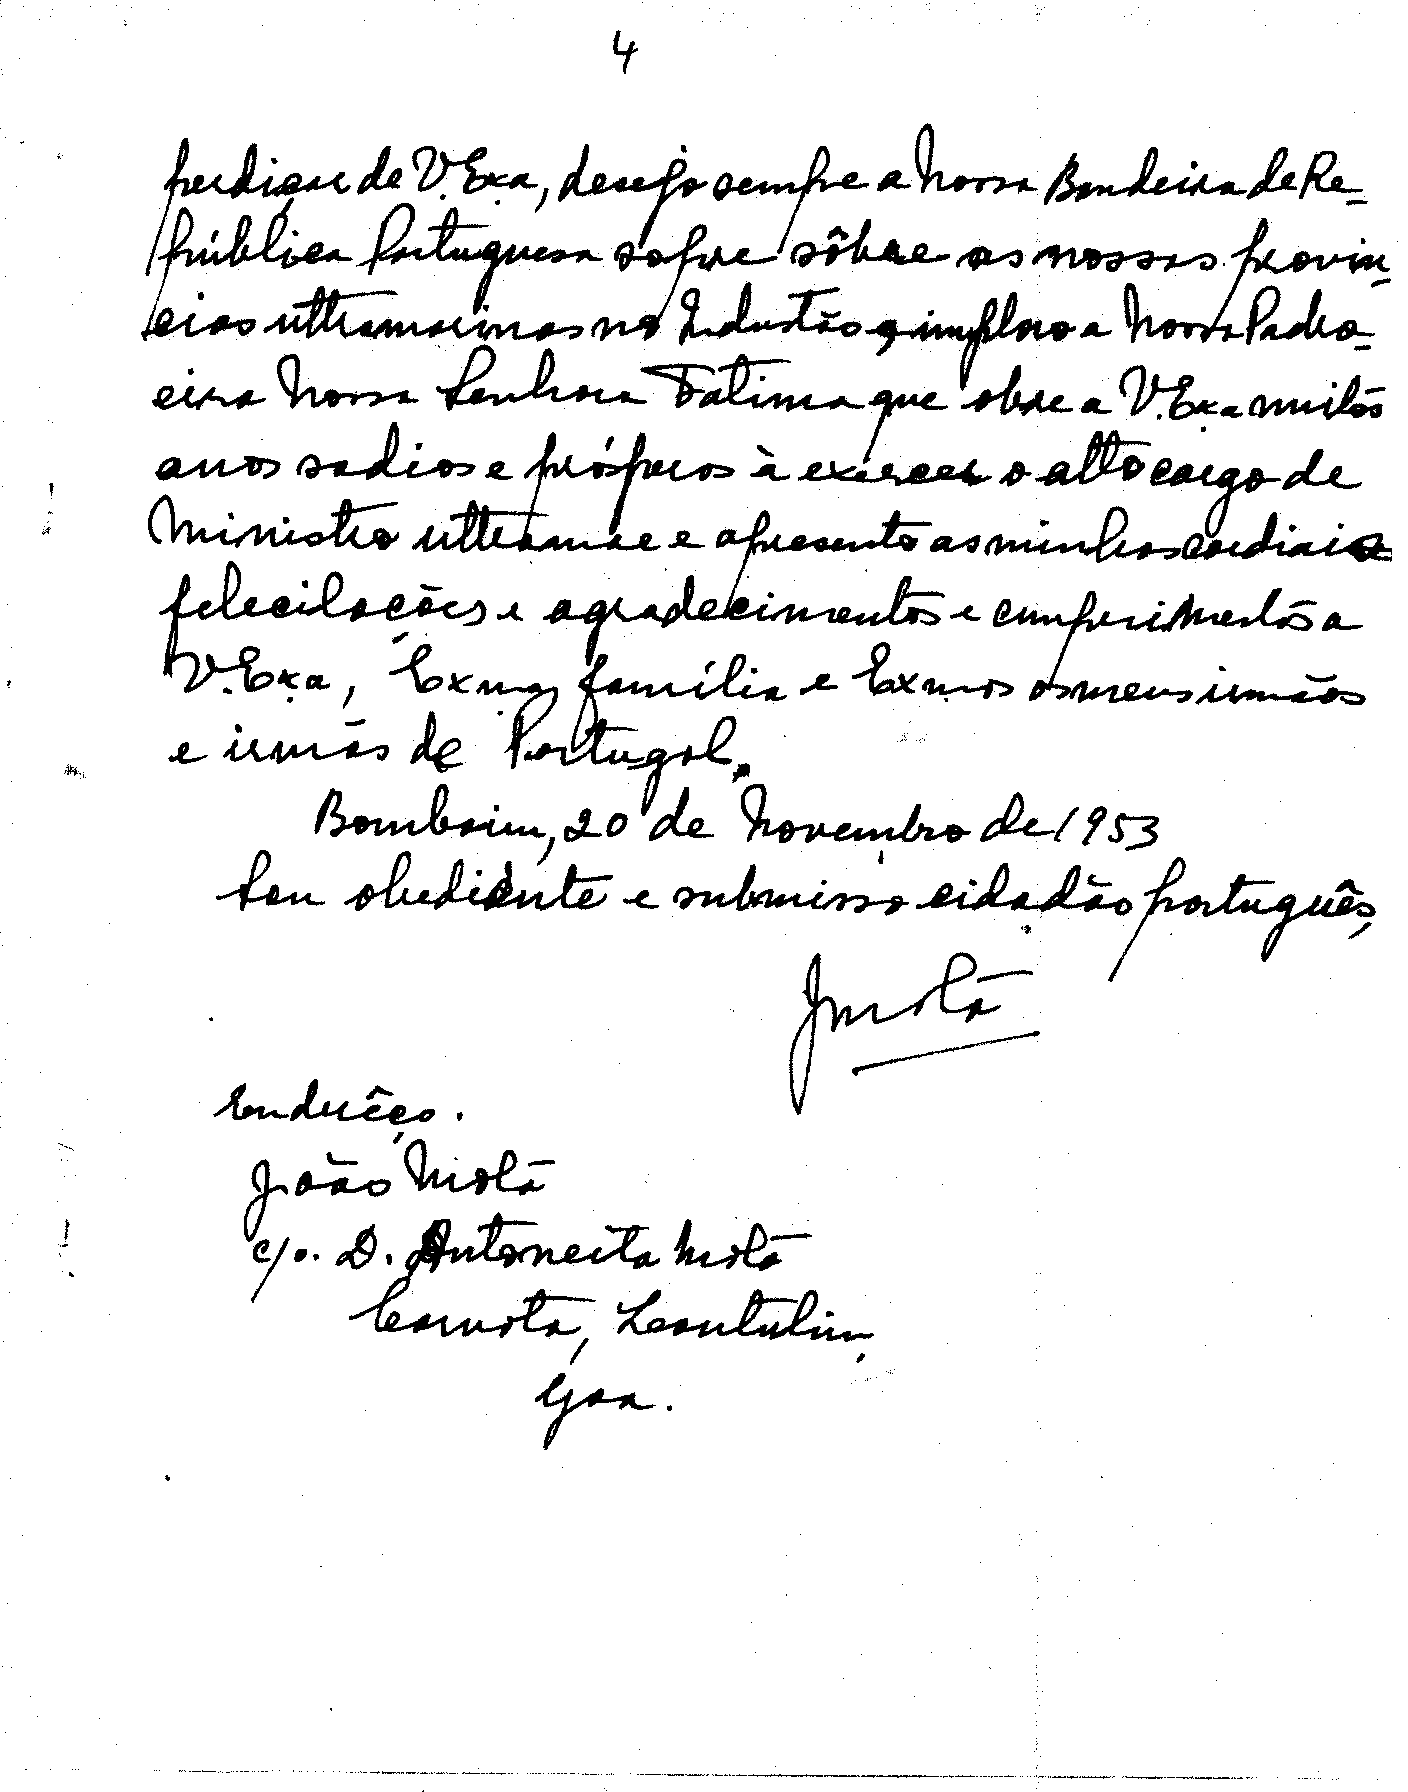 4
perdiçar de V. Exa, desejo sempre a Nossa Bandeira de Re-
pública Portuguesa sopre sôbre as nossas provin-
cias ultramarinas no Industão e imploro a Nossa Padro-
eira Nossa Senhora Fatima que obre a V. Exa muitos
anos sadios e prósperos à exercer o alto cargo de
Ministro ultramar e apresento as minhas cordiais
felecitações e agradecimentos e cumprimentos a
V. Exa, Exma família e Exmos os meus irmãos
e irmãs de Portugal.
Bombaim, 20 de Novembro de 1953
Seu obediente e submisso cidadão português,
JMotá
Endrêço.
João Motá
c/o. D. Antoneita Motá
Carvota, Loutulim,
Goa.